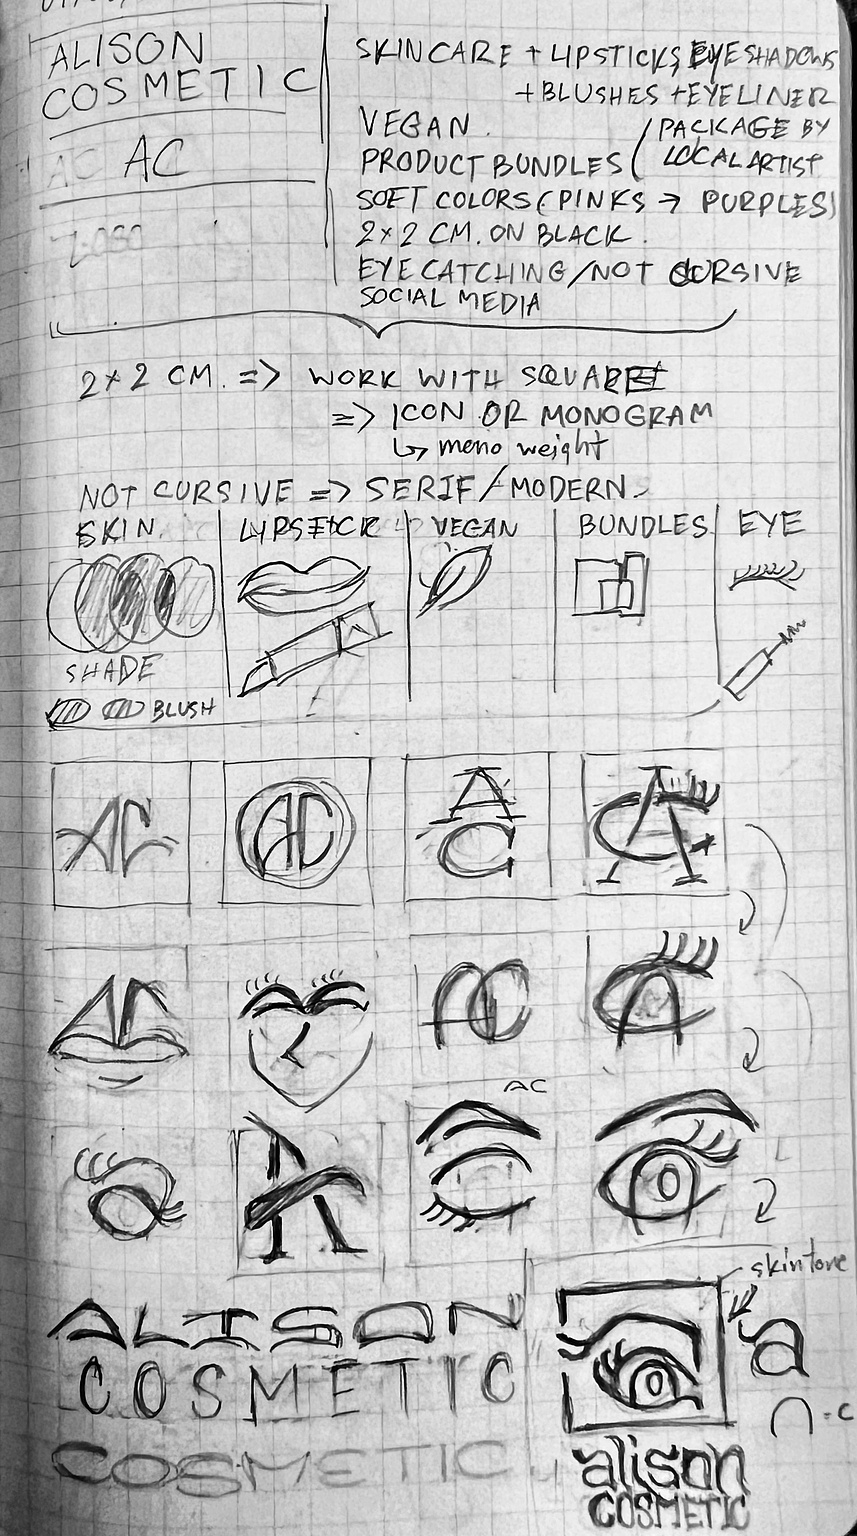 ALISON
COSMETIC
AC AC
SKINCARE + LIPSTICKS, EYESHADOWS
+ BLUSHES + EYELINER
VEGAN.
PRODUCT BUNDLES ( PACKAGE BY
LOCAL ARTIST
SOFT COLORS (PINKS → PURPLES)
2×2 CM. ON BLACK.
EYE CATCHING/NOT CURSIVE
SOCIAL MEDIA
2×2 CM. => WORK WITH SQUARE
=> ICON OR MONOGRAM
↳ mono weight
NOT CURSIVE => SERIF/MODERN
SKIN
LIPSTICK
VEGAN
BUNDLES
EYE
SHADE
BLUSH
AC
AC
A
C
AC
AC
skintone
ALISON
COSMETIC
COSMETIC
a
∩ = C
alison
COSMETIC